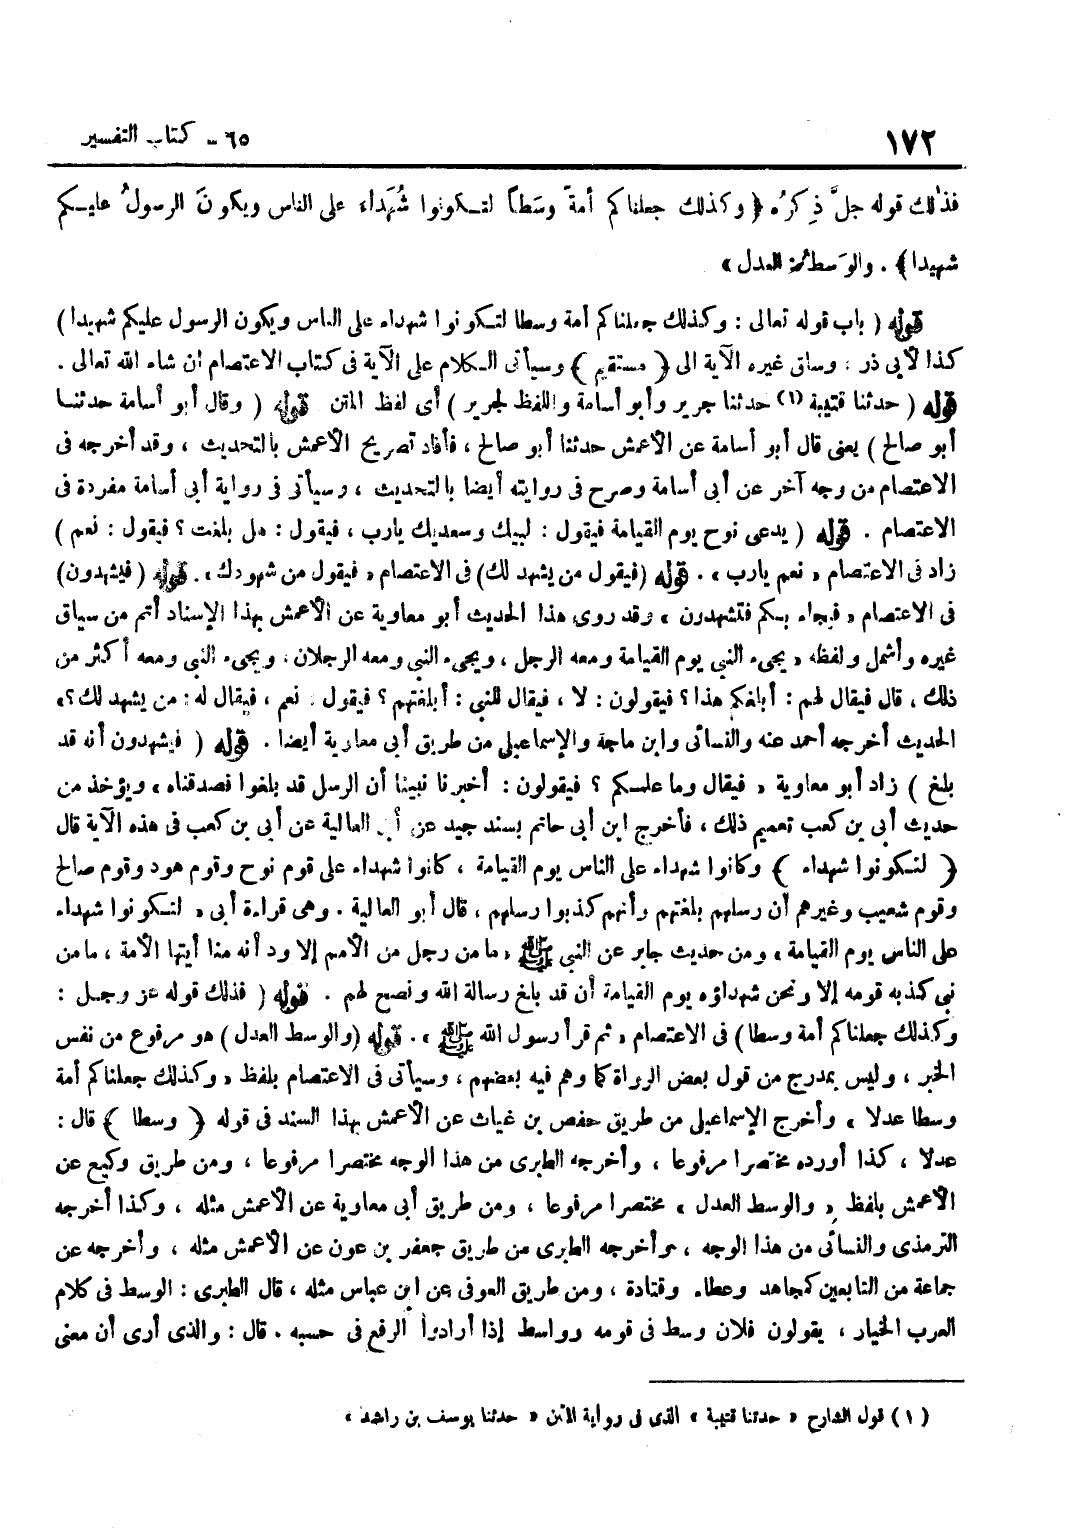 ١٧٢
٦٥ - كتاب التفسير
فذلك قوله جلَّ ذِكرُه ﴿ وكذلك جعلناكم أمةً وسَطاً لتكونوا شُهَداءَ على الناس ويكونَ الرسولُ عليكم
شهيدا﴾ . والوَسط العدل »
قوله ( باب قوله تعالى : وكذلك جعلناكم أمة وسطا لتكونوا شهداء على الناس ويكون الرسول عليكم شهيدا )
كذا لأبى ذر ، وساق غيره الآية الى ﴿ مستقيم ﴾ وسيأتى الكلام على الآية فى كتاب الاعتصام ان شاء الله تعالى .
قوله ( حدثنا قتيبة (١) حدثنا جرير وأبو أسامة واللفظ لجرير ) أى لفظ المتن قوله ( وقال أبو أسامة حدثنا
أبو صالح ) يعنى قال أبو أسامة عن الأعمش حدثنا أبو صالح ، فأفاد تصريح الأعمش بالتحديث ، وقد أخرجه فى
الاعتصام من وجه آخر عن أبى أسامة وصرح فى روايته أيضا بالتحديث ، وسيأتى فى رواية أبى أسامة مفردة فى
الاعتصام . قوله ( يدعى نوح يوم القيامة فيقول : لبيك وسعديك يارب ، فيقول : هل بلغت ؟ فيقول : نعم )
زاد فى الاعتصام « نعم يارب » . قوله (فيقول من يشهد لك) فى الاعتصام « فيقول من شهودك » . قوله (فيشهدون)
فى الاعتصام « فيجاء بكم فتشهدون » وقد روى هذا الحديث أبو معاوية عن الأعمش بهذا الإسناد أتم من سياق
غيره وأشمل ولفظه « يجىء النبي يوم القيامة ومعه الرجل ، ويجىء النبي ومعه الرجلان ، ويجىء النبي ومعه أكثر من
ذلك ، قال فيقال لهم : أبلغكم هذا ؟ فيقولون : لا ، فيقال للنبي : أبلغتهم ؟ فيقول : نعم ، فيقال له : من يشهد لك ؟ »
الحديث أخرجه أحمد عنه والنسائى وابن ماجة والإسماعيلي من طريق أبى معاوية أيضا . قوله ( فيشهدون أنه قد
بلغ ) زاد أبو معاوية « فيقال وما علمكم ؟ فيقولون : أخبرنا نبينا أن الرسل قد بلغوا فصدقناه » ويؤخذ من
حديث أبى بن كعب تعميم ذلك ، فأخرج ابن أبى حاتم بسند جيد عن أبى العالية عن أبى بن كعب فى هذه الآية قال
﴿ لتكونوا شهداء ﴾ وكانوا شهداء على الناس يوم القيامة ، كانوا شهداء على قوم نوح وقوم هود وقوم صالح
وقوم شعيب وغيرهم أن رسلهم بلغتهم وأنهم كذبوا رسلهم ، قال أبو العالية . وهى قراءة أبى « لتكونوا شهداء
على الناس يوم القيامة » ومن حديث جابر عن النبي ﷺ « ما من رجل من الأمم إلا ود أنه منا أيتها الأمة ، ما من
نبى كذبه قومه إلا ونحن شهداؤه يوم القيامة أن قد بلغ رسالة الله ونصح لهم . قوله ( فذلك قوله عز وجل :
وكذلك جعلناكم أمة وسطا ) فى الاعتصام « ثم قرأ رسول الله ﷺ » . قوله (والوسط العدل ) هو مرفوع من نفس
الخبر ، وليس بمدرج من قول بعض الرواة كما وهم فيه بعضهم ، وسيأتى فى الاعتصام بلفظ « وكذلك جعلناكم أمة
وسطا عدلا » وأخرج الإسماعيلى من طريق حفص بن غياث عن الأعمش بهذا السند فى قوله ﴿ وسطا ﴾ قال :
عدلا ، كذا أورده مختصرا مرفوعا ، وأخرجه الطبرى من هذا الوجه مختصرا مرفوعا ، ومن طريق وكيع عن
الأعمش بلفظ « والوسط العدل » مختصرا مرفوعا ، ومن طريق أبى معاوية عن الأعمش مثله ، وكذا أخرجه
الترمذى والنسائى من هذا الوجه ، وأخرجه الطبرى من طريق جعفر بن عون عن الأعمش مثله ، وأخرجه عن
جماعة من التابعين كمجاهد وعطاء وقتادة ، ومن طريق العوفى عن ابن عباس مثله ، قال الطبرى : الوسط فى كلام
العرب الخيار ، يقولون فلان وسط فى قومه وواسط إذا أرادوا الرفع فى حسبه . قال : والذى أرى أن معنى
( ١ ) قول الشارح « حدثنا قتيبة » الذى فى رواية المتن « حدثنا يوسف بن راشد »